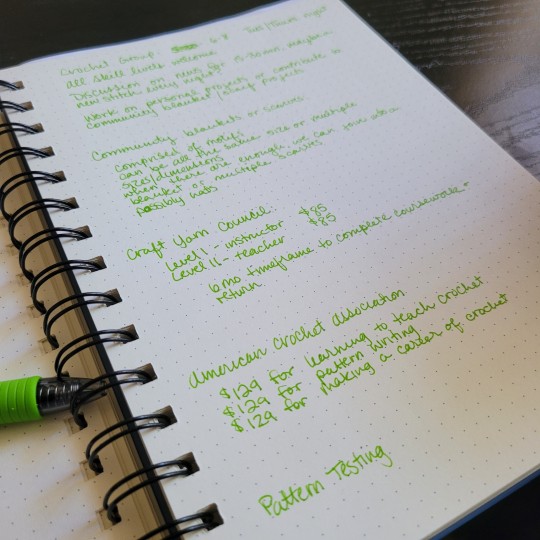 Crochet Group: 6-8 Tues/Thurs nights
all skill levels welcome
Discussion on news for 15-30 min, maybe a
new stitch every night?
Work on personal projects or contribute to
community blanket/scarf projects
Community blankets or scarves:
comprised of motifs
can be all the same size or multiple
sizes/dimensions
when there are enough, we can join into a
blanket or multiple scarves
possibly hats
Craft Yarn Council:
Level I - instructor $85
Level II - teacher $85
6 mo timeframe to complete coursework +
return
American Crochet Association
$129 for learning to teach crochet
$129 for pattern writing
$129 for making a career of crochet
Pattern Testing